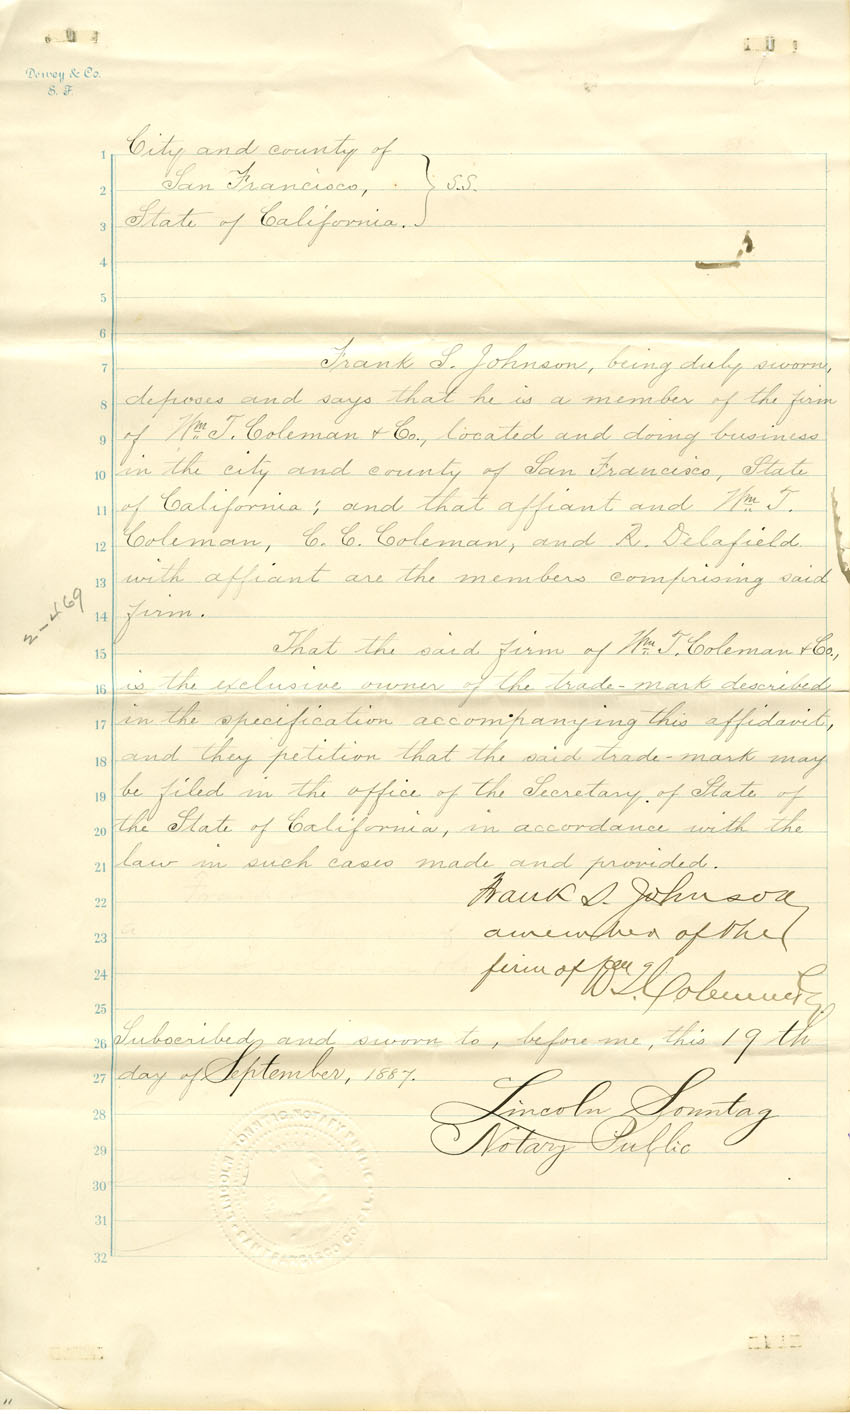 Dewey & Co.
S. F.
1 City and county of
2 San Francisco, } S.S.
3 State of California.
4
5
6
7 Frank S. Johnson, being duly sworn,
8 deposes and says that he is a member of the firm
9 of Wm T. Coleman & Co., located and doing business
10 in the city and county of San Francisco, State
11 of California; and that affiant and Wm T.
12 Coleman, C. C. Coleman, and R. Delafield
13 with affiant are the members comprising said
14 firm.
2-469
15 That the said firm of Wm T. Coleman & Co.,
16 is the exclusive owner of the trade-mark described
17 in the specification accompanying this affidavit,
18 and they petition that the said trade-mark may
19 be filed in the office of the Secretary of State of
20 the State of California, in accordance with the
21 law in such cases made and provided.
22 Frank S. Johnson
23 a member of the
24 firm of Wm T. Coleman & Co
25
26 Subscribed and sworn to, before me, this 19th
27 day of September, 1887.
28 Lincoln Sonntag
29 Notary Public
30
31
32
LINCOLN SONNTAG, NOTARY PUBLIC
SAN FRANCISCO CO. CAL.